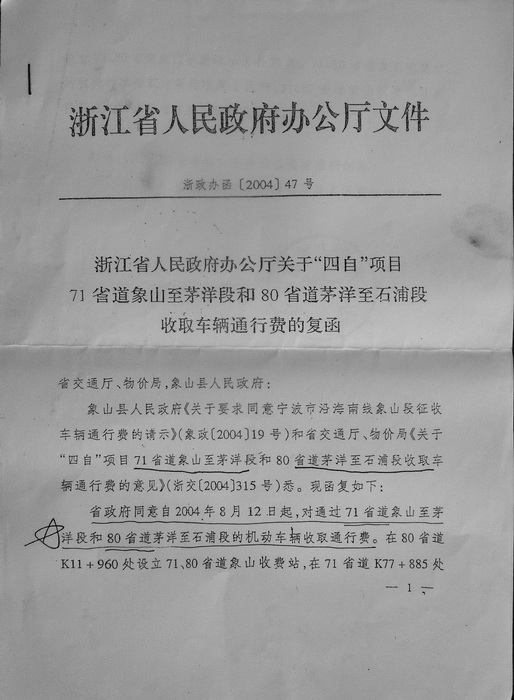 浙江省人民政府办公厅文件
浙政办函〔2004〕47 号
浙江省人民政府办公厅关于“四自”项目
71 省道象山至茅洋段和 80 省道茅洋至石浦段
收取车辆通行费的复函
省交通厅、物价局,象山县人民政府:
象山县人民政府《关于要求同意宁波市沿海南线象山段征收
车辆通行费的请示》(象政〔2004〕19 号)和省交通厅、物价局《关于
“四自”项目 71 省道象山至茅洋段和 80 省道茅洋至石浦段收取车
辆通行费的意见》(浙交〔2004〕315 号)悉。现函复如下:
省政府同意自 2004 年 8 月 12 日起,对通过 71 省道象山至茅
洋段和 80 省道茅洋至石浦段的机动车辆收取通行费。在 80 省道
K11+960 处设立 71、80 省道象山收费站,在 71 省道 K77+885 处
— 1 —